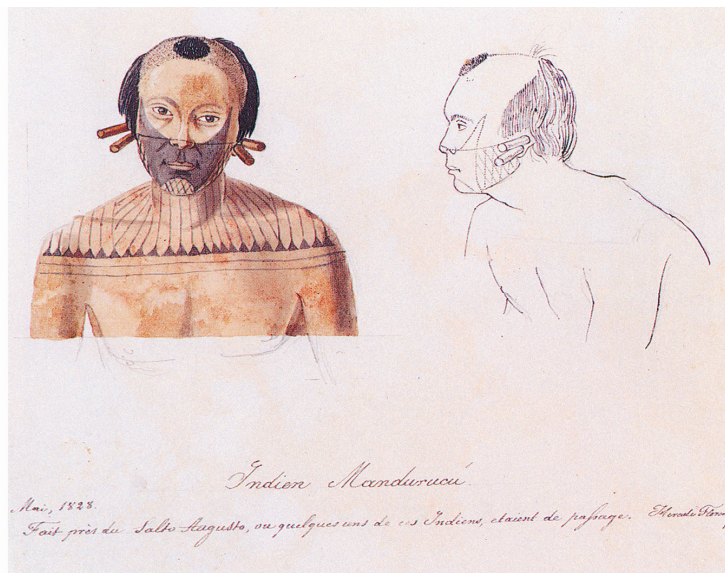 Indien Mandurucú.
Mai, 1828.
Fait près du Salto Augusto, ou quelques uns de ces Indiens, etaient de passage. Hercule